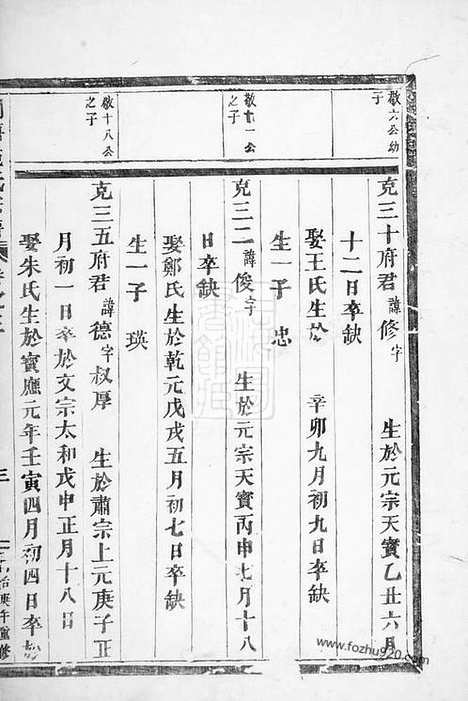 敬六公幼
子
克三十府君諱修字　生於元宗天寶乙丑六月
十二日卒缺
娶王氏生於　辛卯九月初九日卒缺
生一子　忠
敬十一公
之子
克三二諱俊字　生於元宗天寶丙申七月十八
日卒缺
娶鄭氏生於乾元戊戌五月初七日卒缺
生一子　瑛
敬十八公
之子
克三五府君諱德字叔厚　生於肅宗上元庚子正
月初一日卒於文宗太和戊申正月十八日
娶朱氏生於寶應元年壬寅四月初四日卒於
三
庚午重修
www.fozhu920.com